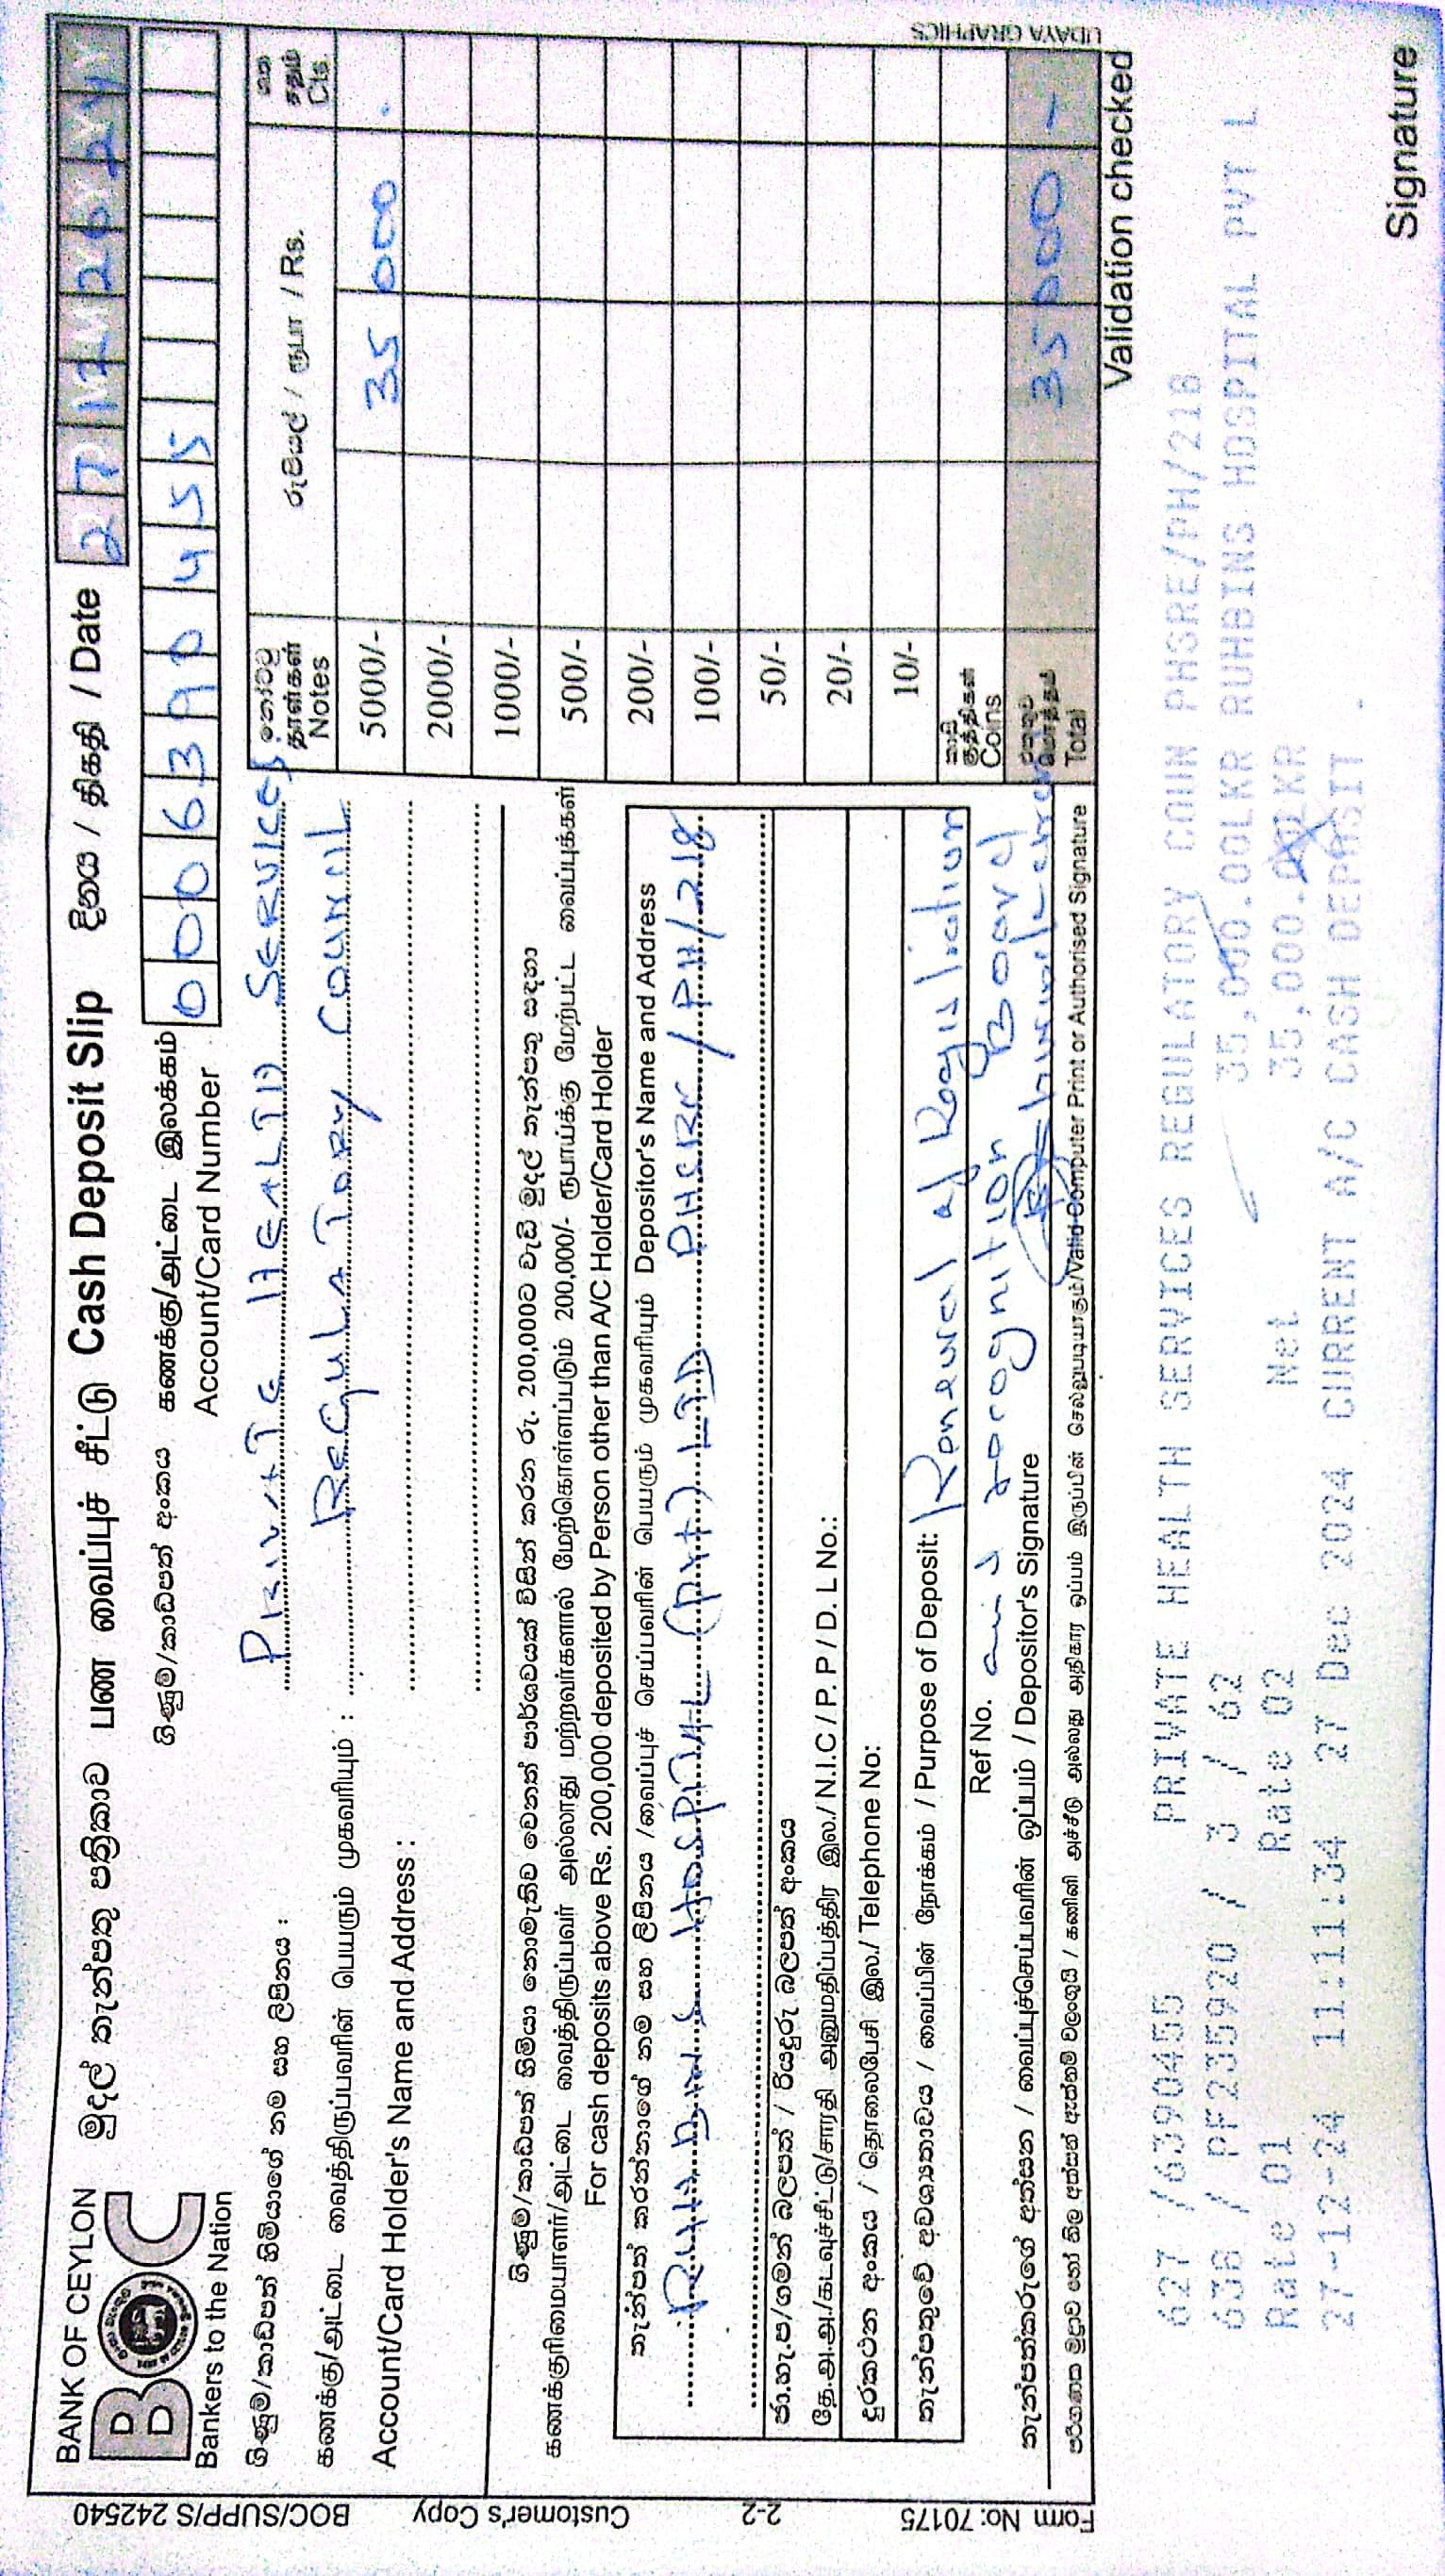 BANK OF CEYLON
BOC
Bankers to the Nation
මුදල් තැන්පතු පත්‍රිකාව பண வைப்புச் சீட்டு Cash Deposit Slip
දිනය / திகதி / Date 27 12 2024
ගිණුම/කාඩ්පත් අංකය கணக்கு/அட்டை இலக்கம்
Account/Card Number 0006390455
ගිණුම/කාඩ්පත් හිමියාගේ නම සහ ලිපිනය :
கணக்கு/அட்டை வைத்திருப்பவரின் பெயரும் முகவரியும் :
Account/Card Holder's Name and Address :
PRIVATE HEALTH SERVICES
REGULATORY COUNCIL
ගිණුම/කාඩ්පත් හිමියා නොමැතිව වෙනත් පාර්ශවයක් විසින් කරන රු. 200,000ට වැඩි මුදල් තැන්පතු සඳහා
கணக்குரிமையாளர்/அட்டை வைத்திருப்பவர் அல்லாது மற்றவர்களால் மேற்கொள்ளப்படும் 200,000/- ரூபாய்க்கு மேற்பட்ட வைப்புக்கள்
For cash deposits above Rs. 200,000 deposited by Person other than A/C Holder/Card Holder
තැන්පත් කරන්නාගේ නම සහ ලිපිනය /வைப்புச் செய்பவரின் பெயரும் முகவரியும் Depositor's Name and Address
RUHBINS HOSPITAL (PVT) LTD PHSRC/PH/218
ජා.හැ.ප/ගමන් බලපත් / රියදුරු බලපත් අංකය
தே.அ.அ/கடவுச்சீட்டு/சாரதி அனுமதிப்பத்திர இல./ N.I.C / P. P / D. L No.:
දුරකථන අංකය / தொலைபேசி இல./ Telephone No:
තැන්පතුවේ අවශ්‍යතාවය / வைப்பின் நோக்கம் / Purpose of Deposit: Renewal of Registration
Ref No. and recognition Board
තැන්පත්කරුගේ අත්සන / வைப்புச்செய்பவரின் ஒப்பம் / Depositor's Signature
පරිගණක මුද්‍රාව හෝ නිල අත්සන් ඇත්නම් වලංගුයි / கணினி அச்சீடு அல்லது அதிகார ஒப்பம் இருப்பின் செல்லுபடியாகும்/Valid Computer Print or Authorised Signature
නෝට්ටු தாள்கள் Notes
රුපියල් / ரூபா / Rs.
ශත சதம் Cts.
5000/- 35 000 .
2000/-
1000/-
500/-
200/-
100/-
50/-
20/-
10/-
කාසි குத்திகள் Coins
එකතුව மொத்தம் Total 35 000 -
Validation checked
UDAYA GRAPHICS
BOC/SUPP/S 242540
Customer's Copy
2-2
Form No: 70175
627 /6390455 PRIVATE HEALTH SERVICES REGULATORY COUN PHSRE/PH/218
638 / PF235920 / 3 / 62 35,000.00LKR RUHBINS HOSPITAL PVT L
Rate 01 Rate 02 Net 35,000.00LKR
27-12-24 11:11:34 27 Dec 2024 CURRENT A/C CASH DEPOSIT .
Signature